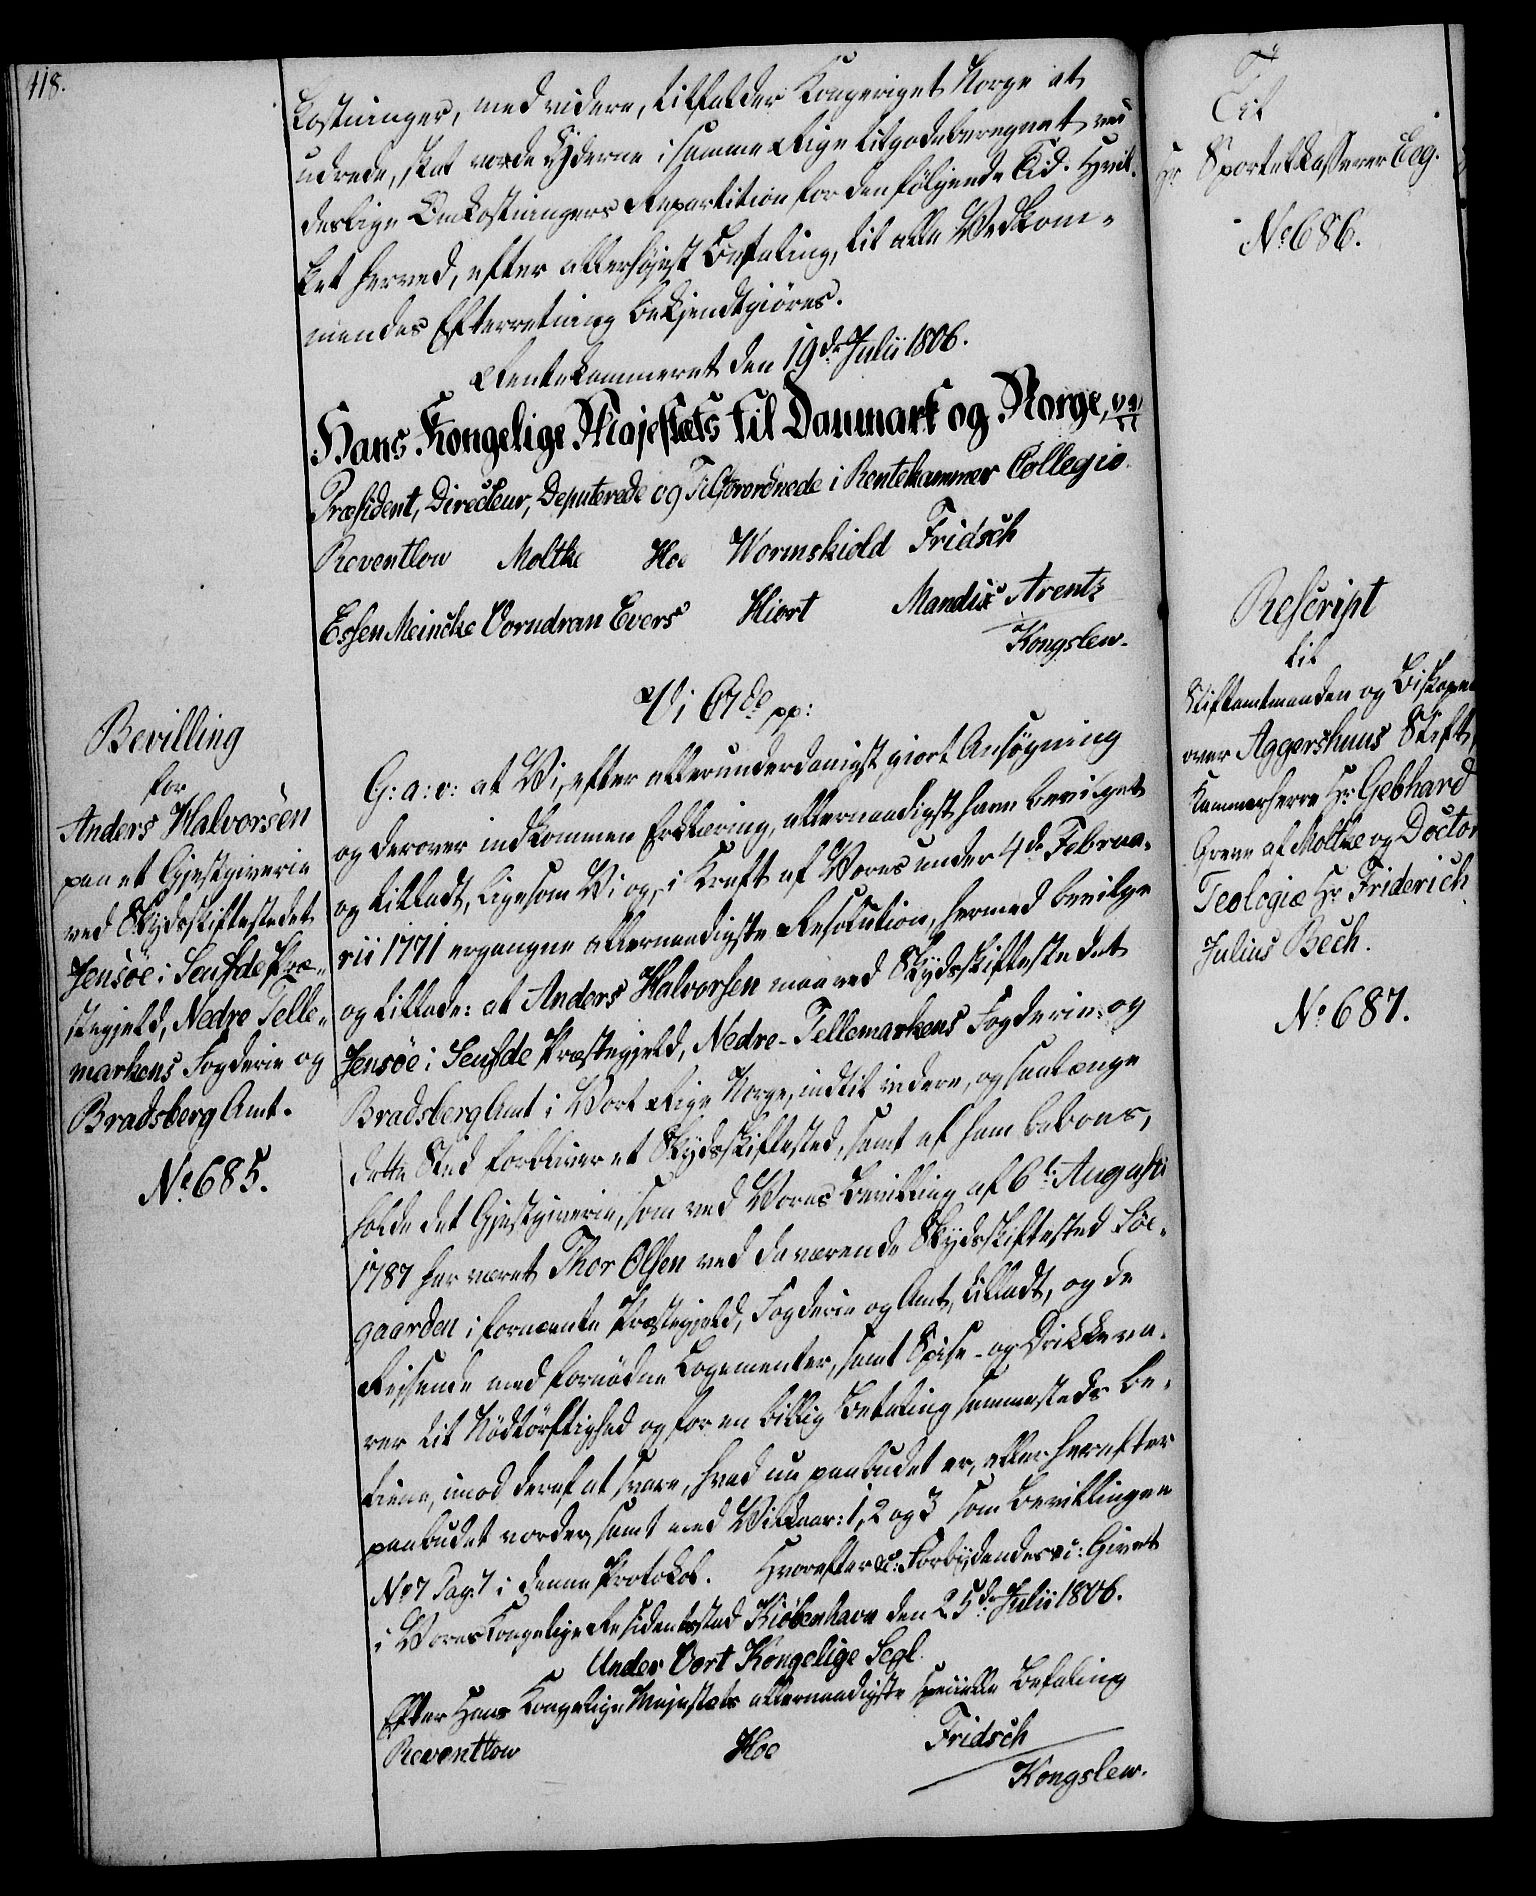 418.
kostninger, med videre, tilfalder Kongeriget Norge at
udrede, skal vorde Yderne i samme Rige tilgodeberegnet ved
deslige Omkostningers Repartition for den følgende Tid. Hvil-
ket herved, efter allerhøjest Befaling, til alle Vedkom-
mendes Efterretning bekjendtgiöres.
Rentekammeret den 19de Julii 1806.
Hans Kongelige Majestæts til Danmark og Norge,
Præsident, Directeur, Deputerede og Tilforordnede i Rentekammer Collegio.
Reventlow Moltke Hoe Wormskiold Fridsch
Essen Meincke Vorndran Evers Hiort Mandix Arentz
Kongslew.
Bevilling
for
Anders Halvorsen
paa et Gjestgiverie
ved Skydsskiftestedet
Jensöe i Seufde Præ-
stegjeld, Nedre Telle-
markens Fogderie og
Bradsberg Amt.
No 685.
Vi C 7de pp:
G: a: v: at Vi, efter allerunderdanigst giort Ansögning
og derover indkommen Erklæring, allernaadigst have bevilget
og tilladt, ligesom Vi og, i Kraft af Vores under 4de Februa-
rii 1771 ergangne allernaadigste Resolution, hermed bevilge
og tillade: at Anders Halvorsen maa ved Skydsskiftestedet
Jensöe i Seufde Præstegjeld, Nedre-Tellemarkens Fogderie og
Bradsberg Amt i Vort Rige Norge, indtil videre, og saalænge
dette Sted forbliver et Skydsskiftested, samt af ham beboes,
holde det Gjestgiverie, som ved Vores Bevilling af 6te Augusti
1787 har været Thor Olsen ved daværende Skydsskiftested Söe-
gaarden i fornævnte Præstegjeld, Fogderie og Amt, tilladt, og de
Rejsende med fornödne Logementer, samt Spise- og Drikkeva-
rer til Nödtörftighed og for en billig Betaling sammesteds be-
tiene, imod deraf at svare, hvad nu paabudet er, eller herefter
paabudet vorder, samt med Vilkaar: 1, 2 og 3 som Bevillingen
No 7 Pag: 7 i denne Protokol. Hvorefter &c: Forbydendes &c: Givet
i Vores Kongelige Residentsstad Kiöbenhavn den 25de Julii 1806.
Under Vort Kongelige Segl.
Efter Hans Kongelige Majestæts allernaadigste specielle Befaling
Reventlow Hoe Fridsch
Kongslew.
Til
Hr Sportelkasserer Eeg.
No 686.
Rescript
til
Stiftamtmanden og Biskopen
over Aggershuus Stift,
Kammerherre Hr Gebhard
Greve af Moltke og Doctor
Teologiæ Hr Friderich
Julius Bech.
No 687.